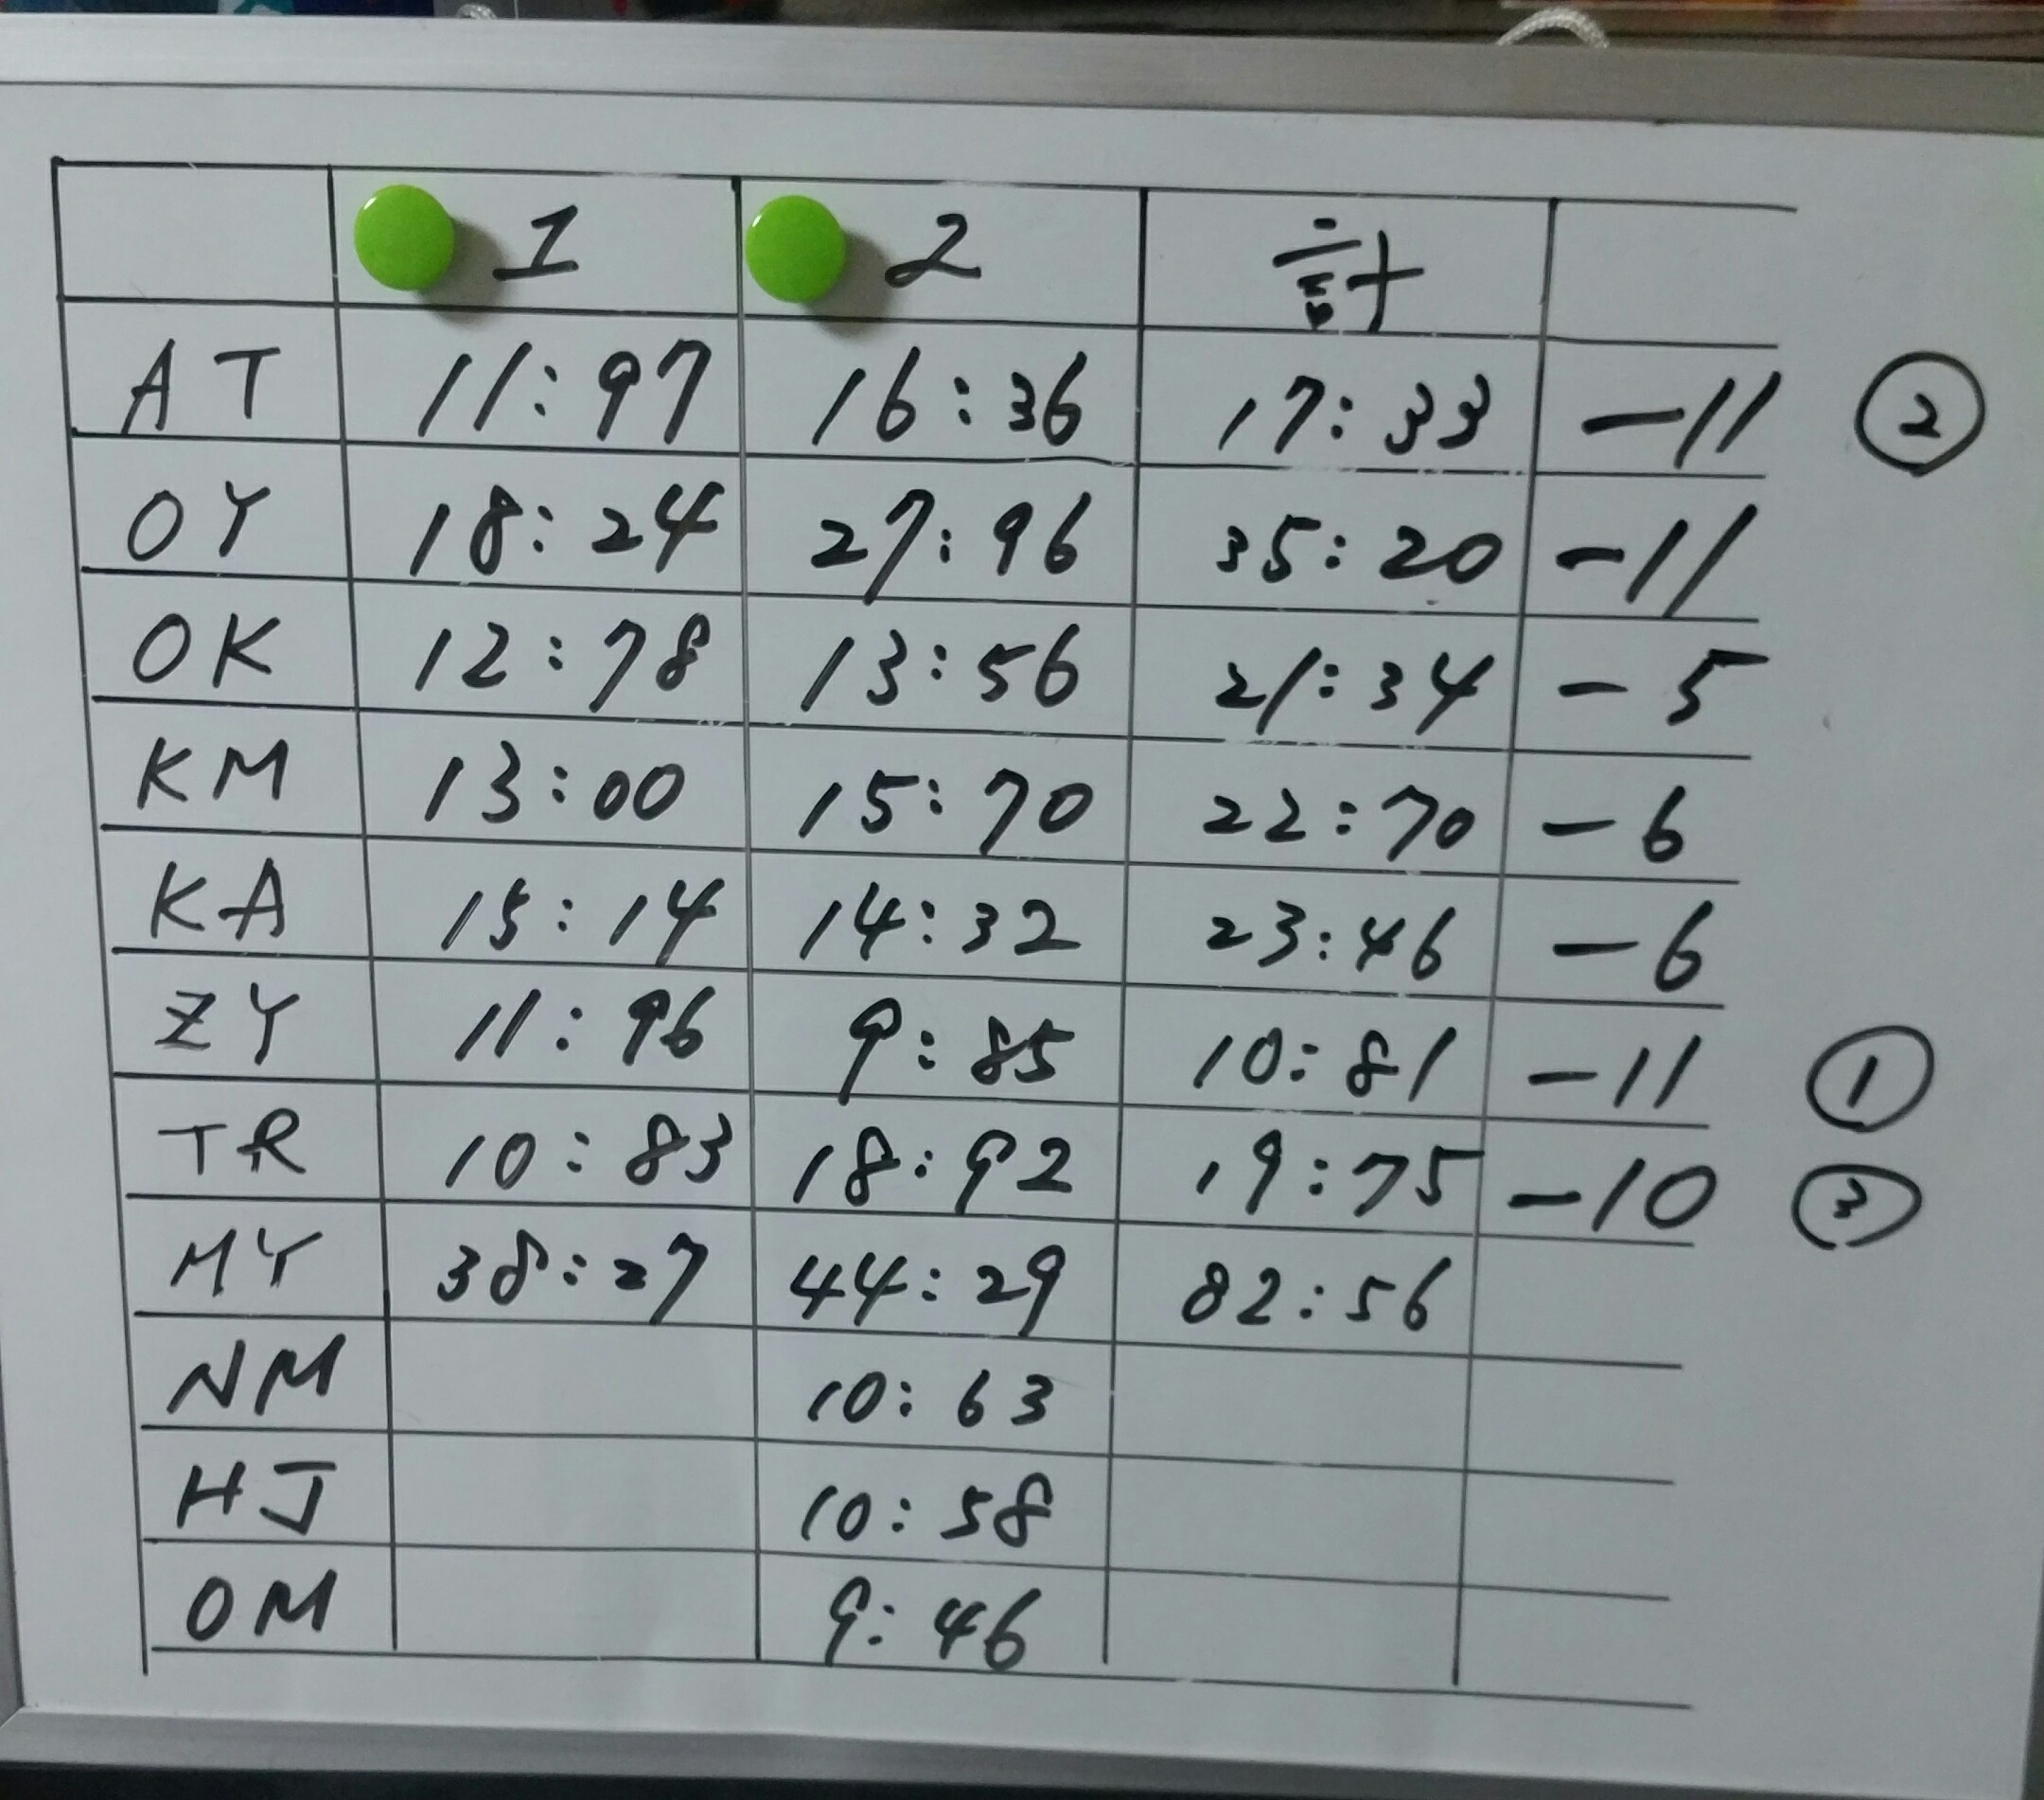 1 2 計
AT 11:97 16:36 17:33 -11 ②
OY 18:24 27:96 35:20 -11
OK 12:78 13:56 21:34 -5
KM 13:00 15:70 22:70 -6
KA 15:14 14:32 23:46 -6
ZY 11:96 9:85 10:81 -11 ①
TR 10:83 18:92 19:75 -10 ③
MY 38:27 44:29 82:56
NM 10:63
HJ 10:58
OM 9:46